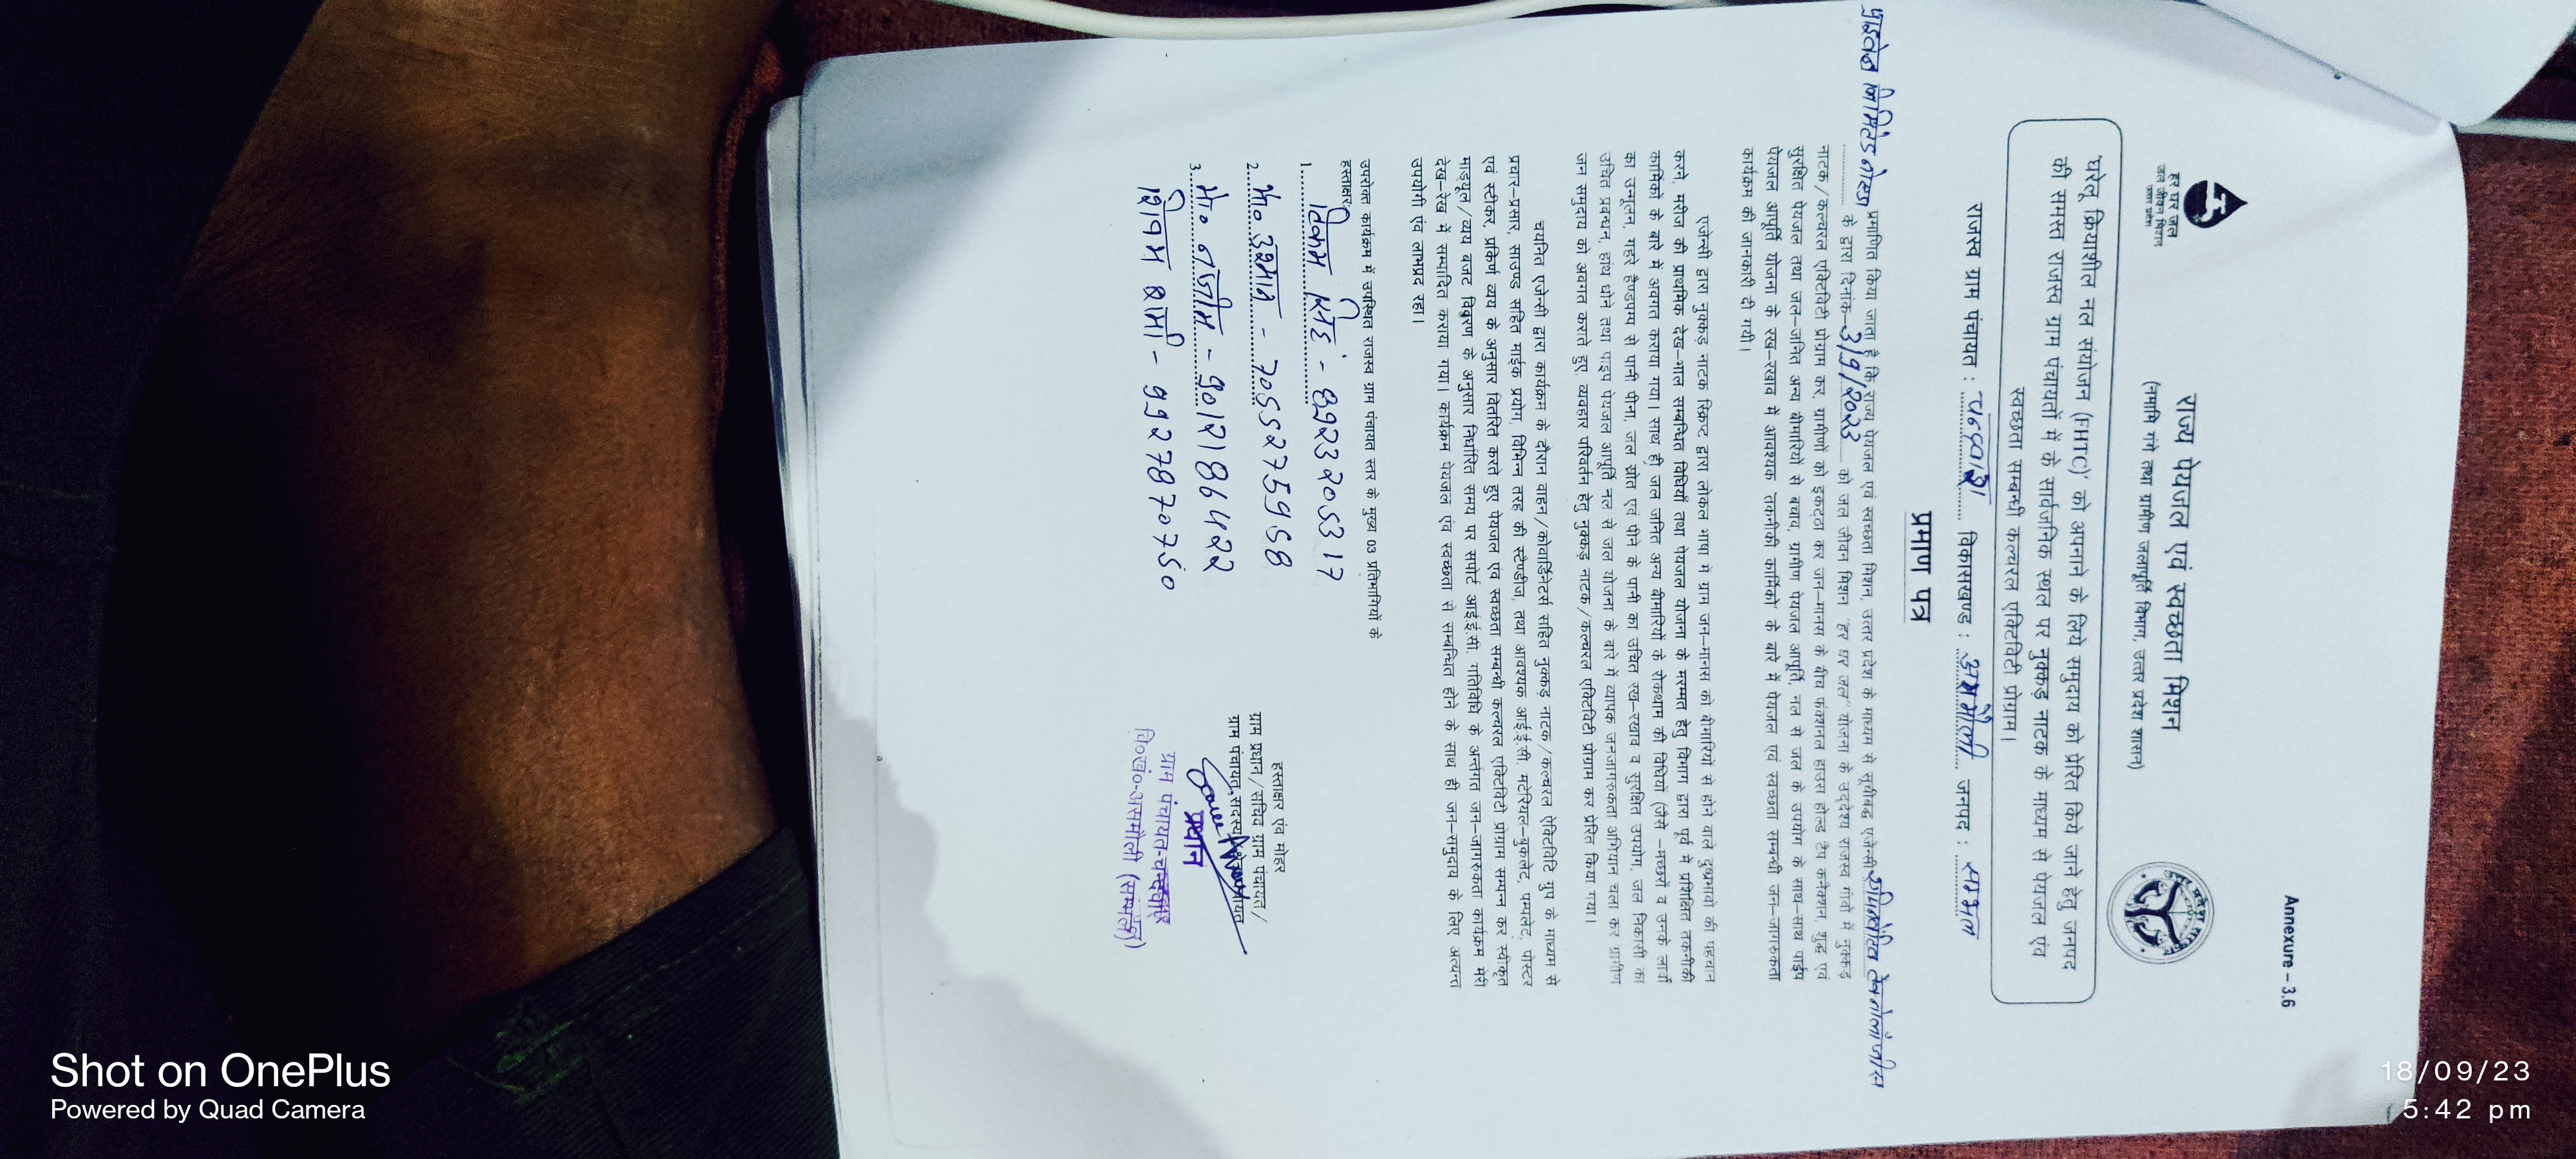 Annexure – 3.6
हर घर जल
जल जीवन मिशन
उत्तर प्रदेश
राज्य पेयजल एवं स्वच्छता मिशन
(नमामि गंगे तथा ग्रामीण जलापूर्ति विभाग, उत्तर प्रदेश शासन)
'घरेलू क्रियाशील नल संयोजन (FHTC)' को अपनाने के लिये समुदाय को प्रेरित किये जाने हेतु जनपद
की समस्त राजस्व ग्राम पंचायतों में के सार्वजनिक स्थल पर नुक्कड़ नाटक के माध्यम से पेयजल एंव
स्वच्छता सम्बन्धी कल्चरल एक्टिविटी प्रोग्राम।
राजस्व ग्राम पंचायत : चन्दवार विकासखण्ड : असमोली जनपद : सम्भल
प्रमाण पत्र
प्रमाणित किया जाता है कि राज्य पेयजल एवं स्वच्छता मिशन, उत्तर प्रदेश के माध्यम से सूचीबद्ध एजेन्सी
प्राइवेट लिमिटेड नोएडा के द्वारा दिनांक–3/9/2023 को जल जीवन मिशन "हर घर जल" योजना के उद्देश्य राजस्व गांवो में नुक्कड़
नाटक/कल्चरल एक्टिविटी प्रोग्राम कर, ग्रामीणों को इकट्ठा कर जन–मानस के बीच फंक्शनल हाउस होल्ड टैप कनैक्शन, शुद्ध एवं
सुरक्षित पेयजल तथा जल–जनित अन्य बीमारियों से बचाव, ग्रामीण पेयजल आपूर्ति, नल से जल के उपयोग के साथ–साथ पाईप
पेयजल आपूर्ति योजना के रख–रखाव में आवश्यक तकनीकी कार्मिको के बारे में पेयजल एवं स्वच्छता सम्बन्धी जन–जागरुकता
कार्यक्रम की जानकारी दी गयी।
एजेन्सी द्वारा नुक्कड़ नाटक स्क्रिप्ट द्वारा लोकल भाषा में ग्राम जन–मानस को बीमारियों से होने वाले दुष्प्रभावों की पहचान
करने, मरीज की प्राथमिक देख–भाल सम्बन्धित विधियों तथा पेयजल योजना के मरम्मत हेतु विभाग द्वारा पूर्व में प्रशिक्षित तकनीकी
कार्मिकों के बारे में अवगत कराया गया। साथ ही जल जनित अन्य बीमारियों के रोकथाम की विधियों (जैसे –मच्छरों व उनके लार्वा
का उन्मूलन, गहरे हैण्डपम्प से पानी पीना, जल स्रोत एवं पीने के पानी का उचित रख–रखाव व सुरक्षित उपयोग, जल निकासी का
उचित प्रबन्धन, हांथ धोने तथा पाइप पेयजल आपूर्ति नल से जल योजना के बारे में व्यापक जनजागरुकता अभियान चला कर ग्रामीण
जन समुदाय को अवगत कराते हुए, व्यवहार परिवर्तन हेतु नुक्कड़ नाटक/कल्चरल एक्टिविटी प्रोग्राम कर प्रेरित किया गया।
चयनित एजेन्सी द्वारा कार्यक्रम के दौरान वाहन/कोवार्डिनेटर्स सहित नुक्कड़ नाटक/कल्चरल ऐक्टिविटि ग्रुप के माध्यम से
प्रचार–प्रसार, साउण्ड सहित माईक प्रयोग, विभिन्न तरह की स्टैण्डीज, तथा आवश्यक आई.ई.सी. मटेरियल–बुकलेट, पम्पलेट, पोस्टर
एवं स्टीकर, प्रकिर्ण व्यय के अनुसार वितरित करते हुए पेयजल एंव स्वच्छता सम्बन्धी कल्चरल एक्टिविटी प्रोग्राम सम्पन्न कर स्वीकृत
माड्यूल/व्यय बजट विवरण के अनुसार निर्धारित समय पर सपोर्ट आई.ई.सी. गतिविधि के अर्न्तगत जन–जागरुकता कार्यक्रम मेरी
देख–रेख में सम्पादित कराया गया। कार्यक्रम पेयजल एंव स्वच्छता से सम्बन्धित होने के साथ ही जन–समुदाय के लिए अत्यन्त
उपयोगी एंव लाभप्रद रहा।
उपरोक्त कार्यक्रम में उपस्थित राजस्व ग्राम पंचायत स्तर के मुख्य 03 प्रतिभागियों के
हस्ताक्षर:
1. विक्रम सिंह -
2. मो०
3. मो० नाजिम -
शिवम शर्मा -
हस्ताक्षर एंव मोहर
ग्राम प्रधान/सचिव ग्राम पंचायत/
ग्राम पंचायत, सदस्य
प्रधान
ग्राम पंचायत-चन्दवार
वि०खं०-असमोली (सम्भल)
Shot on OnePlus
Powered by Quad Camera
18/09/23
5:42 pm